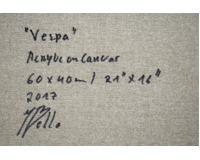 "Vespa"
Acrylic on Canvas
60x40cm / 21"x16"
2017